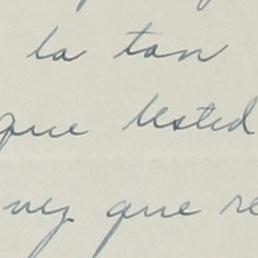 la tan
que Usted
vez que re